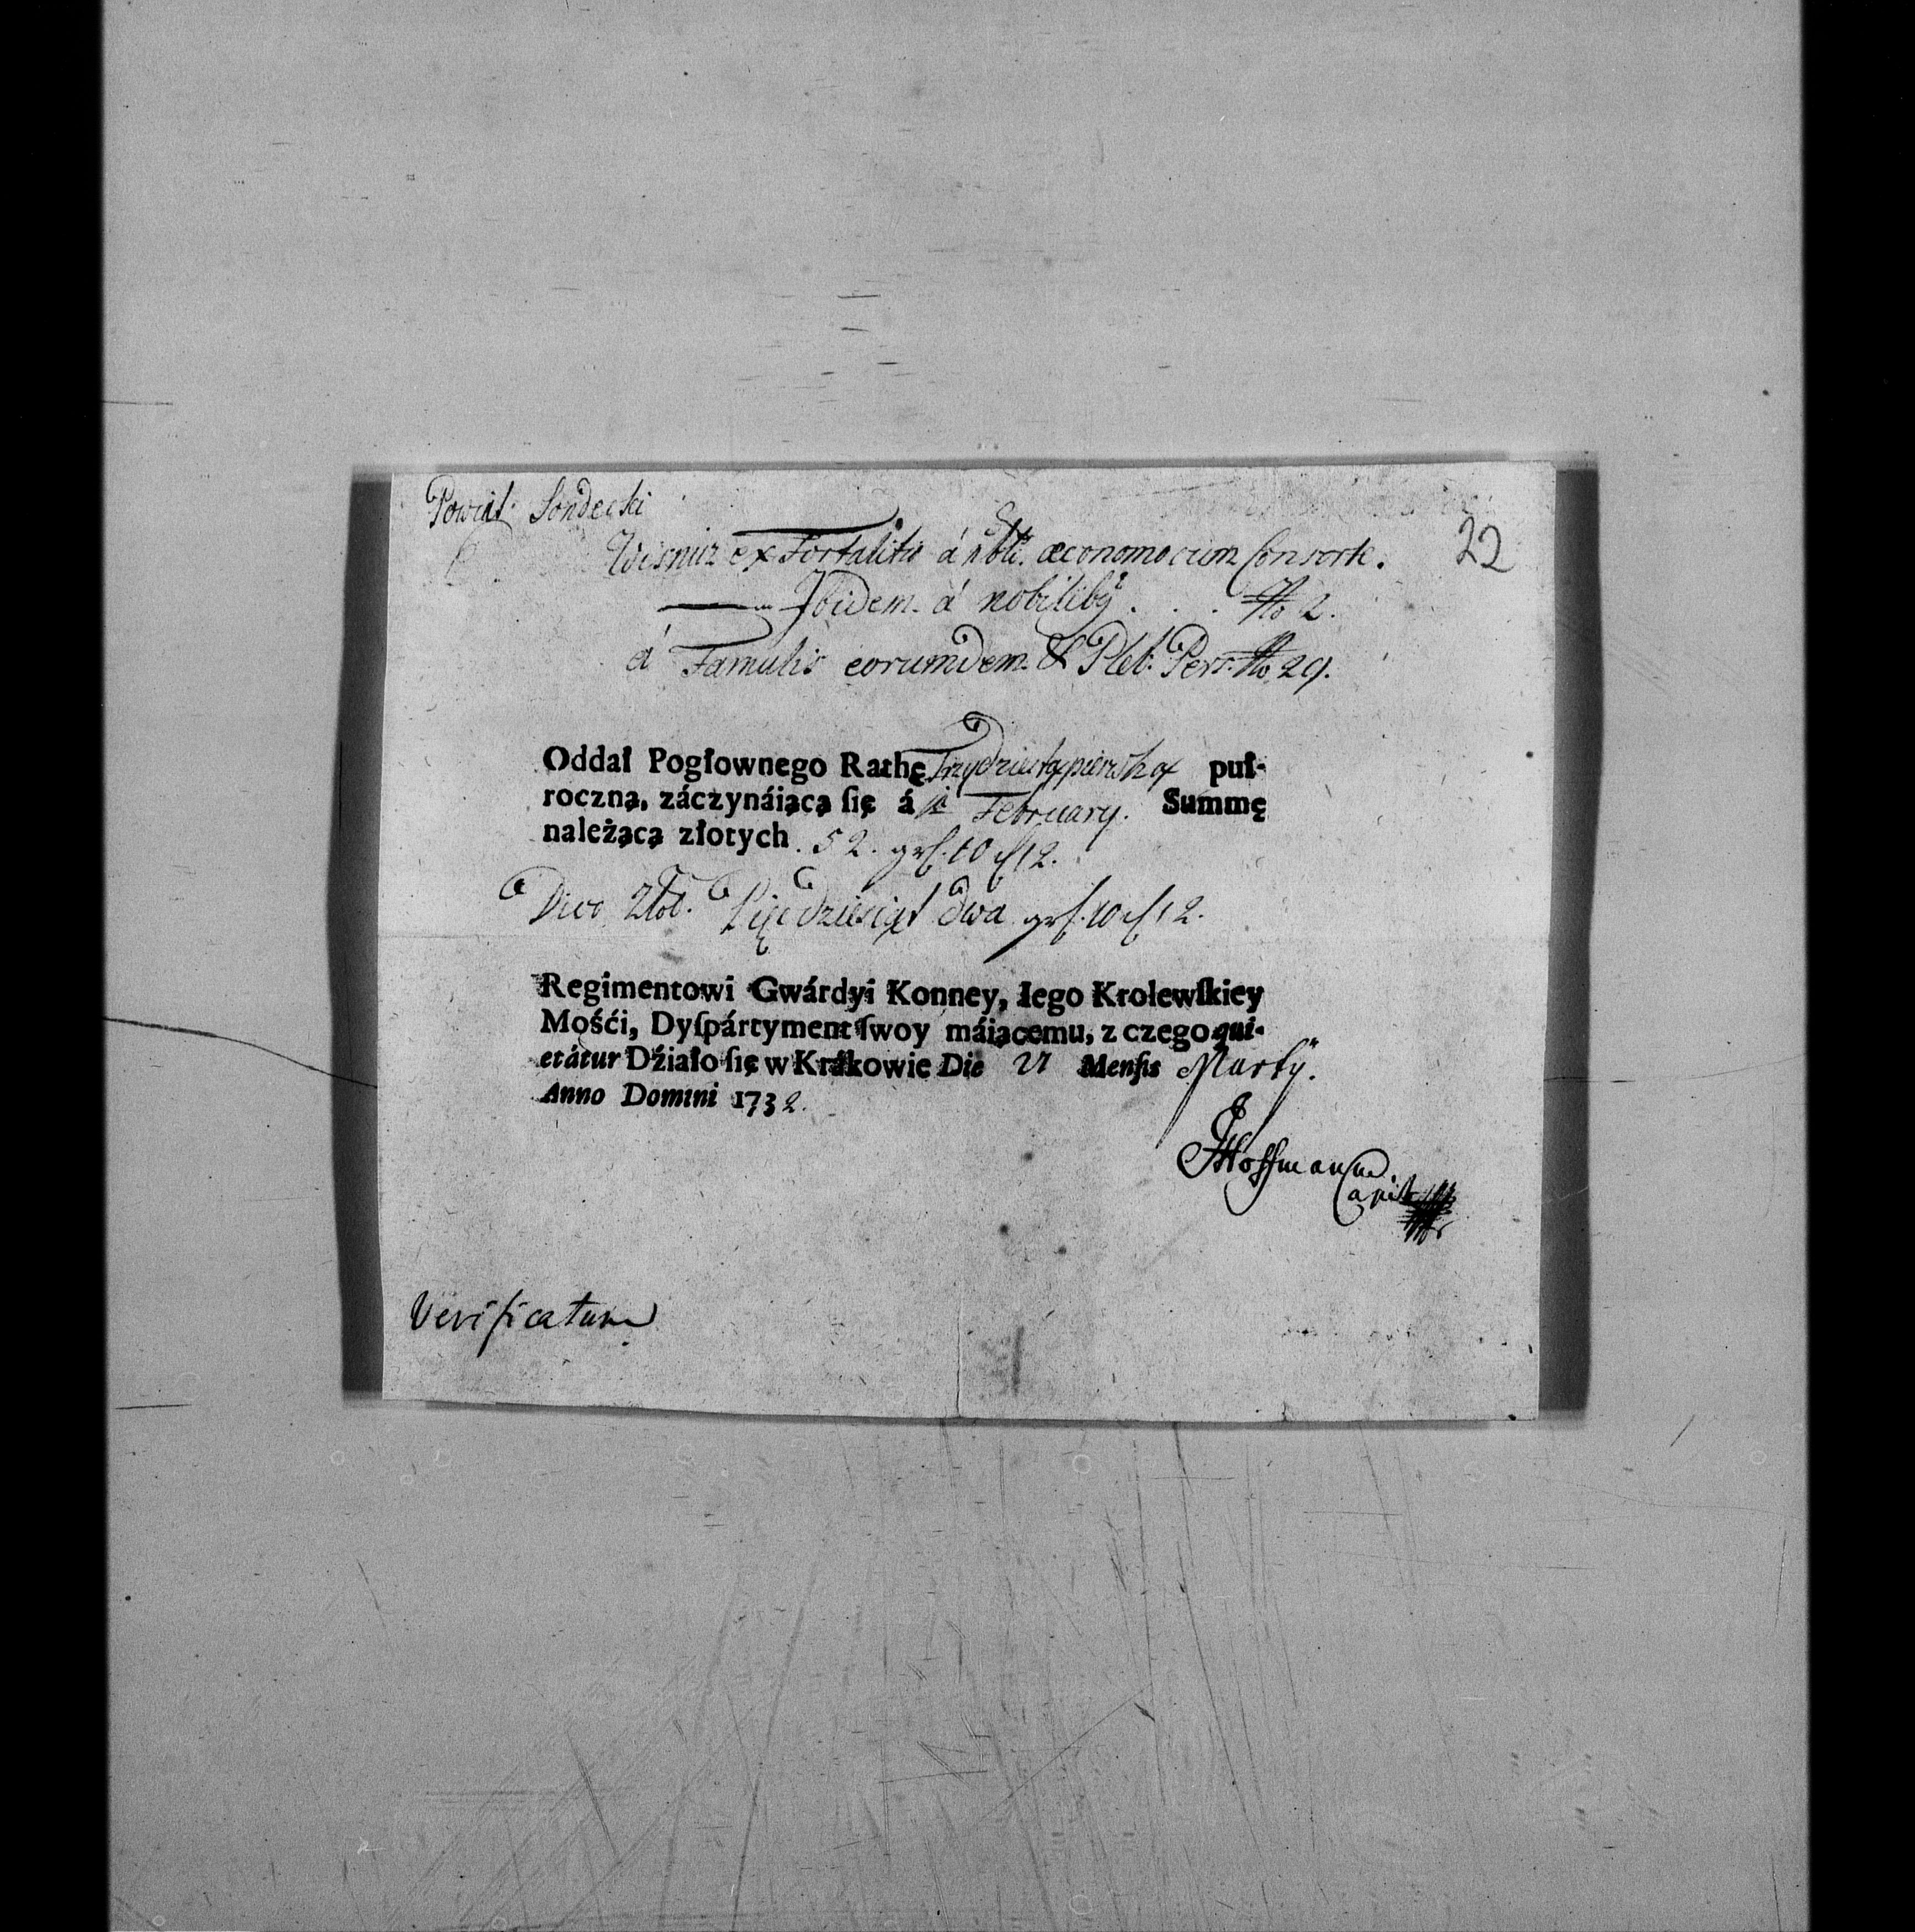 Powiat Sondecki
22
Wisnicz ex Fortalitio á nbli. œconomo cum Consorte.
Ibidem. á nobiliby . . . No 2.
á Famulis eorumdem. & Pleb. Pers. No 29.
Oddał Pogłownego Rathę Trzydziestąpierszą puł-
roczną, záczynáiącą ſię á 1a February. Summę
należącą złotych. 52. grſ. 10 ſ 12.
Dico Złot. Pięcdziesiąt dwa grſ. 10 ſ 12.
Regimentowi Gwárdyi Konney, Iego Krolewſkiey
Mośći, Dyſpártyment ſwoy máiącemu, z czego qui-
etátur Dźiało ſię w Krákowie Die 21 Menſis Marty.
Anno Domini 1732.
Hoffmann
Capit
Verificatum